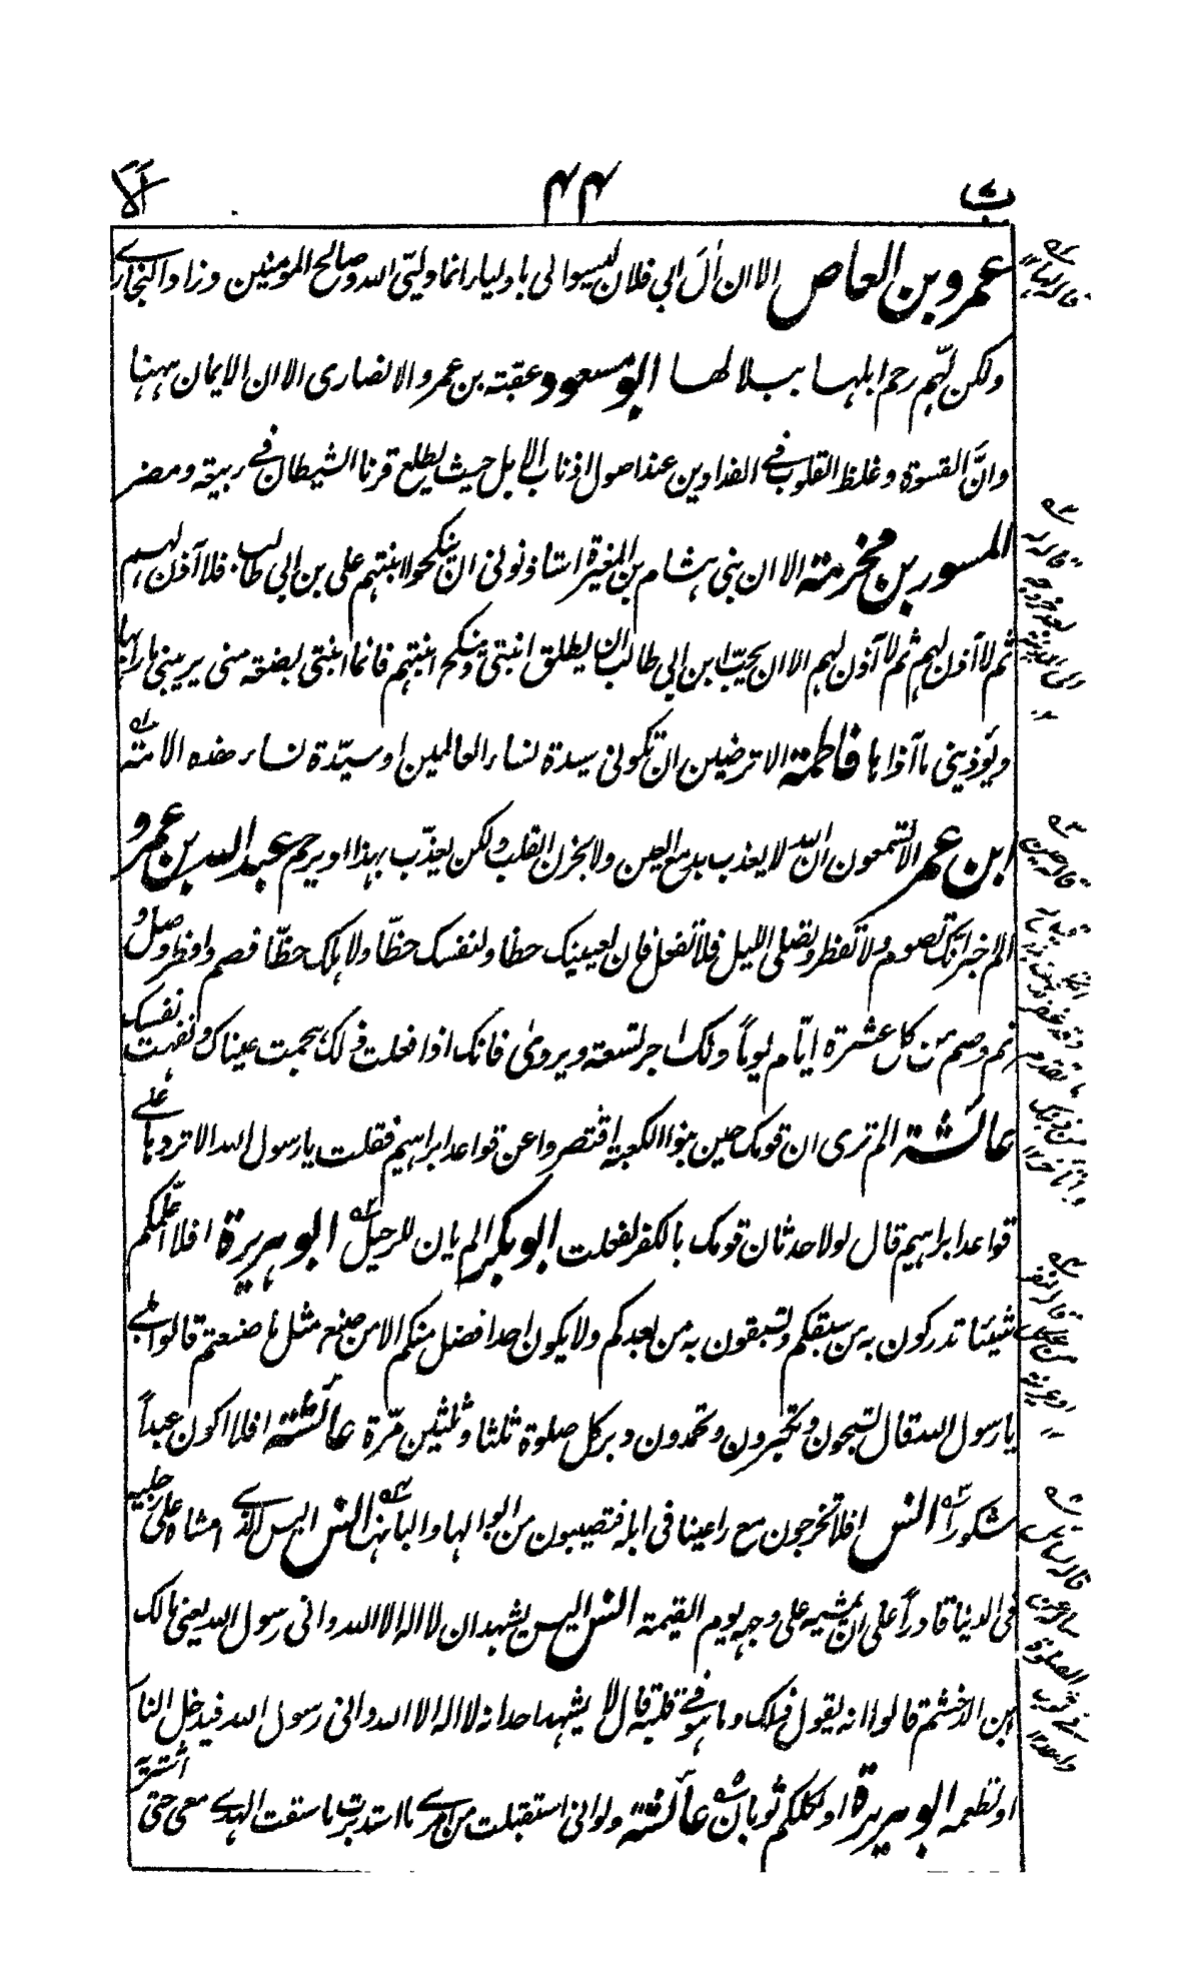 ألا ۴۴ ت
عمرو بن العاص الا ان اٰلَ ابي فلان ليسوا لى باولياء انما وليّى الله وصالح المومنين وزاد البخارى
ولكن لهم رحم ابلها ببلالها ابو مسعود عقبة بن عمرو الانصارى الا ان الايمان ههنا
وانّ القسوة وغلظ القلوب فى الفدادين عند اصول اذناب الابل حيث يطلع قرنا الشيطان فى ربيعة ومضر
المسور بن مخرمة الا ان بنى هشام بن المغيرة استاذنونى ان ينكحوا ابنتهم على بن ابى طالب فلا آذن لهم
ثم لا آذن لهم ثم لا آذن لهم الا ان يحبّ ابن ابى طالب ان يطلق ابنتى وينكح ابنتهم فانما ابنتى بضعة منى يريبنى ما رابها
ويؤذينى ما آذاها فاطمة الا ترضين ان تكونى سيدة نساء العالمين او سيّدة نساء هذه الامة
ابن عمر الا تسمعون ان الله لا يعذب بدمع العين ولا بحزن القلب ولكن يعذّب بهذا او يرحم عبد الله بن عمرو
الم اخبر انك تصوم ولا تفطر وتصلى الليل فلا تفعل فان لعينك حظا ولنفسك حظّا ولاهلك حظّا فصم وافطر وصل و
نم وصم من كل عشرة ايّام يوماً ولك اجر تسعة ويروىٰ فانك اذا فعلت ذلك هجمت عيناك ونفهت نفسك
عائشة الم ترى ان قومك حين بنوا الكعبة اقتصروا عن قواعد ابراهيم فقلت يا رسول الله الا تردها على
قواعد ابراهيم قال لولا حدثان قومك بالكفر لفعلت ابو بكر الم يان للرحيل ابو هريرة افلا اعلّمكم
شيئا تدركون به من سبقكم وتسبقون به من بعدكم ولا يكون احد افضل منكم الا من صنع مثل ما صنعتم قالوا بلى
يا رسول الله قال تسبحون وتكبرون وتحمدون دبر كل صلوة ثلثا وثلثين مرّة عائشة افلا اكون عبداً
شكوراً انس افلا تخرجون مع راعينا فى ابله فتصيبون من ابوالها والبانها انس اليس الذى امشاه على رجليه
فى الدنيا قادراً على ان يمشيه على وجهه يوم القيمة انس اليس يشهد ان لا اله الا الله وانى رسول الله يعنى مالك
ابن الدخشم قالوا انه يقول ذلك وما هو فى قلبه قال لا يشهد احد انه لا اله الا الله وانى رسول الله فيدخل النار
او تطعمه ابو هريرة اولكلكم ثوبان عائشة ولو انى استقبلت من امرى ما استدبرت ما سقت الهدى معى حتى اشتريه